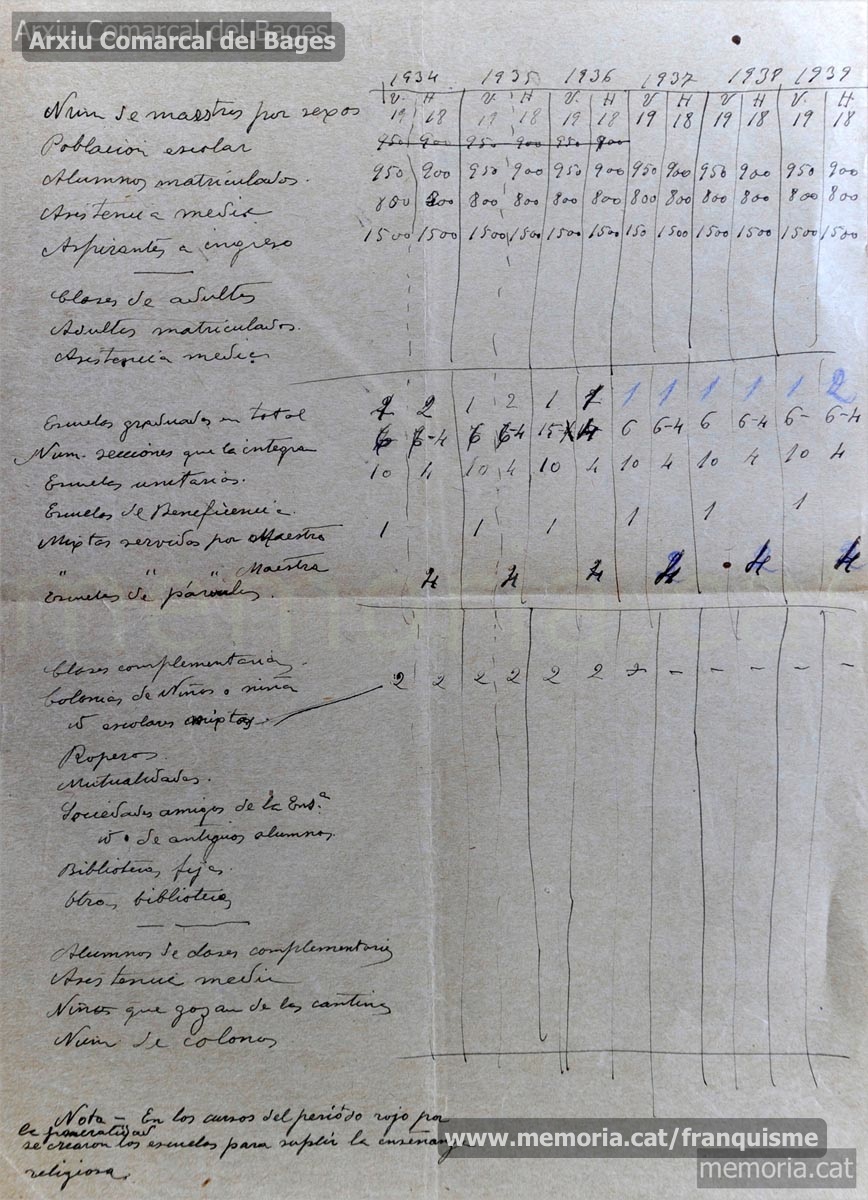 Arxiu Comarcal del Bages
Arxiu Comarcal del Bages
1934 1935 1936 1937 1938 1939
V. H V. H V. H V H V H V. H
Num de maestros por sexos 19 18 19 18 19 18 19 18 19 18 19 18
Poblacion escolar 950 900 950 900 950 900
Alumnos matriculados. 950 900 950 900 950 900 950 900 950 900 950 900
Asistencia media 800 800 800 800 800 800 800 800 800 800 800 800
Aspirantes a ingreso 1500 1500 1500 1500 1500 1500 150 1500 1500 1500 1500 1500
Clases de adultos
Adultos matriculados.
Asistencia media
Escuelas graduadas en total 2 1 2 1 1 1 1 1 1 2
Num. secciones que la integra 6-4 6 6-4 15 6 6-4 6 6-4 6- 6-4
Escuelas unitarias. 10 4 10 4 10 4 10 4 10 4 10 4
Escuelas de Beneficencia. 1 1 1
Mixtas servidas por Maestro 1 1 1
" " " Maestra
Escuelas de párvulos. 4 4 4 4 4 4
Clases complementarias.
Colonias de Niños o niña 2 2 2 2 2 2 - - - - - -
escolares mixtas
Roperos.
Mutualidades.
Sociedades amigos de la Ens.ª
de antiguos alumnos.
Bibliotecas fijas.
Otras bibliotecas
Alumnos de clases complementarias
Asistencia media
Niños que gozan de las cantinas
Num de colonos
Nota - En los cursos del período rojo por
la generalidad
se crearon las escuelas para suplir la enseñanza
religiosa.
www.memoria.cat/franquisme
memoria.cat